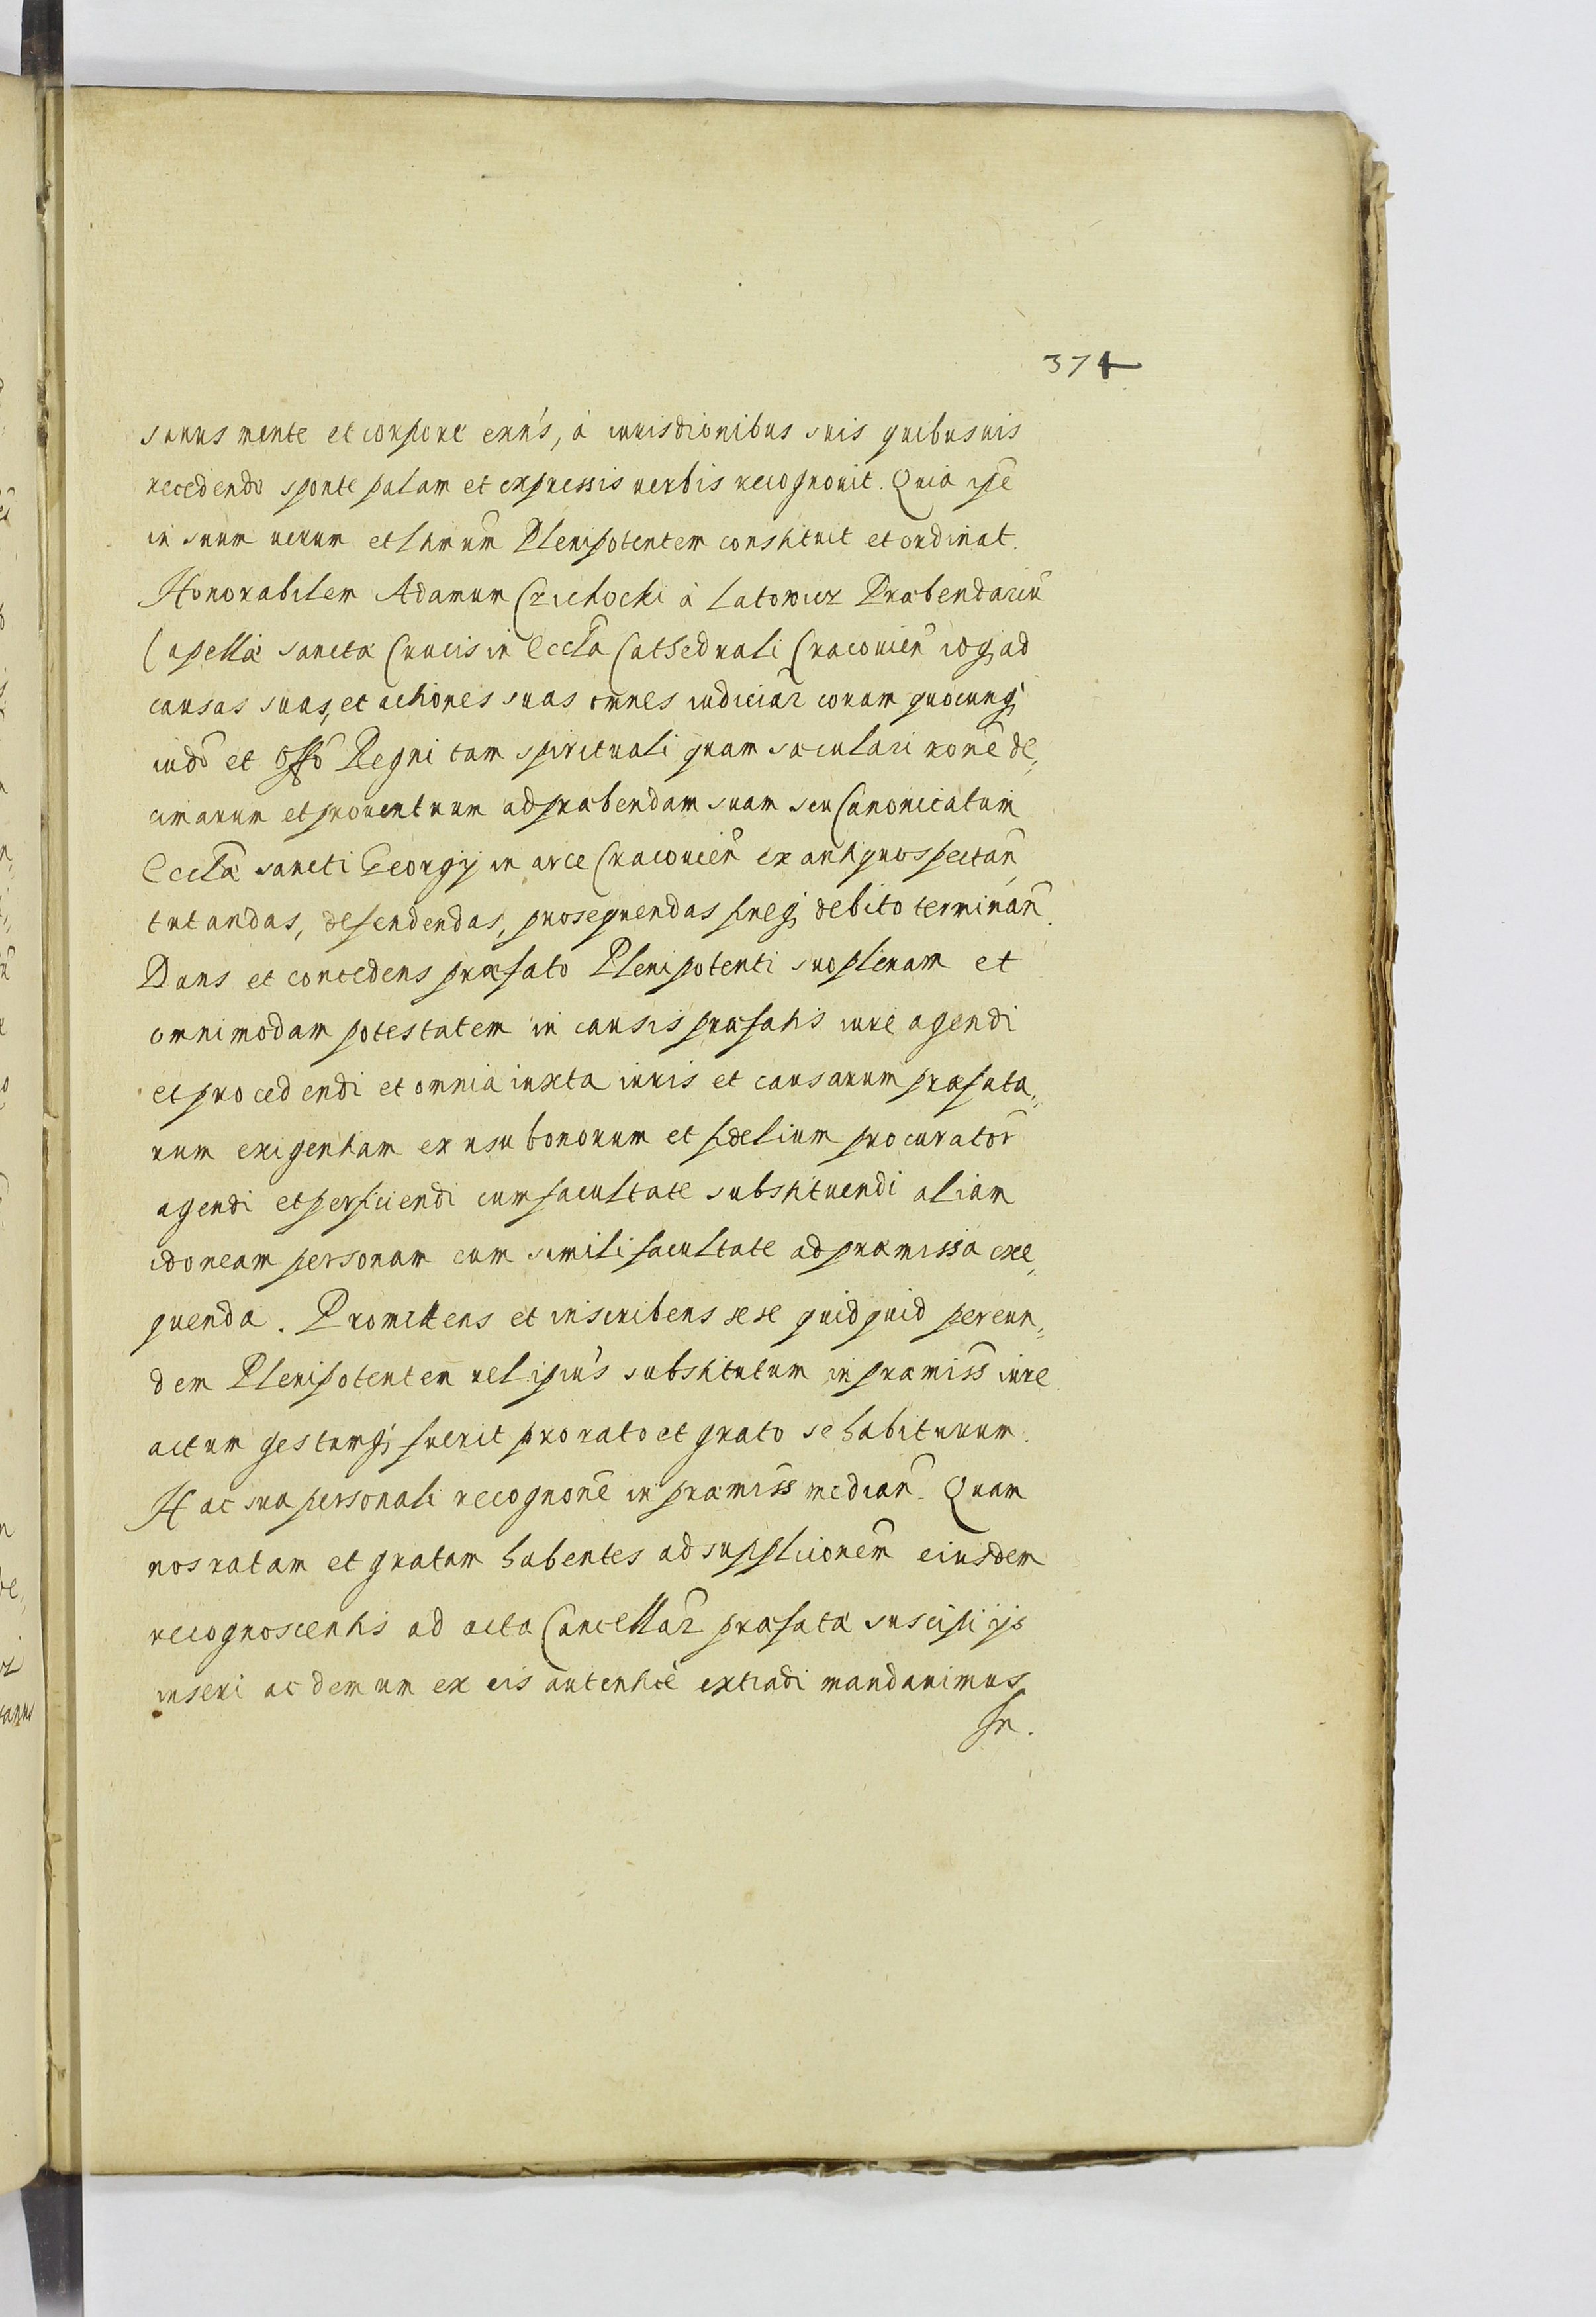 374
sanus mente et corpore exñs, à iurisdionibus suis quibusuis
recedendo sponte palam et expressis uerbis recognouit. Quia ipẽ
in suum uerum et lttmum Plenipotentem constituit et ordinat.
Honorabilem Adamum Czichocki à Latowicz Præbendariũ
Capellæ sanctæ Crucis in Eccła Cathedrali Cracouieñ idq; ad
causas suas, et actiones suas omnes iudiciar̃ coram quocunq;
iudõ et Offõ Regni tam spirituali quam sæculari rone de,,
cimarum et prouentuum ad præbendam suam seu Canonicatum
Ecclæ sancti Georgij in arce Cracouieñ ex antiquo spectañ
tutandas, defendendas, prosequendas fineq; debito terminañ.
Dans et concedens præfato Plenipotenti suo plenam et
omnimodam potestatem in causis præfatis iure agendi
et procedendi et omnia iuxta iuris et causarum præfata,,
rum exigentiam ex usu bonorum et fidelium procurator̃
agendi et perficiendi cum facultate substituendi aliam
idoneam personam cum simili facultate ad præmissa exe,,
quenda. Promittens et inscribens sese quidquid per eun,,
dem Plenipotentem uel ipius substitutum in præmiss̃ iure
actum gestumq; fuerit pro rato et grato se habiturum.
Hac sua personali recognone in præmiss̃ mediañ. Quam
nos ratam et gratam habentes ad supplicionem eiusdem
recognoscentis ad acta Cancellar̃ præfatæ suscipi ijs
inseri ac demum ex eis autenticè extradi mandauimus